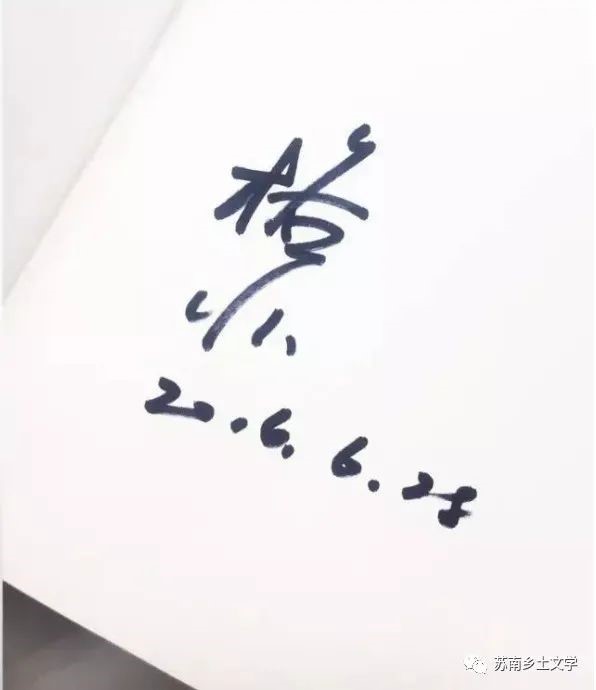 格非
2016.6.28
苏南乡土文学